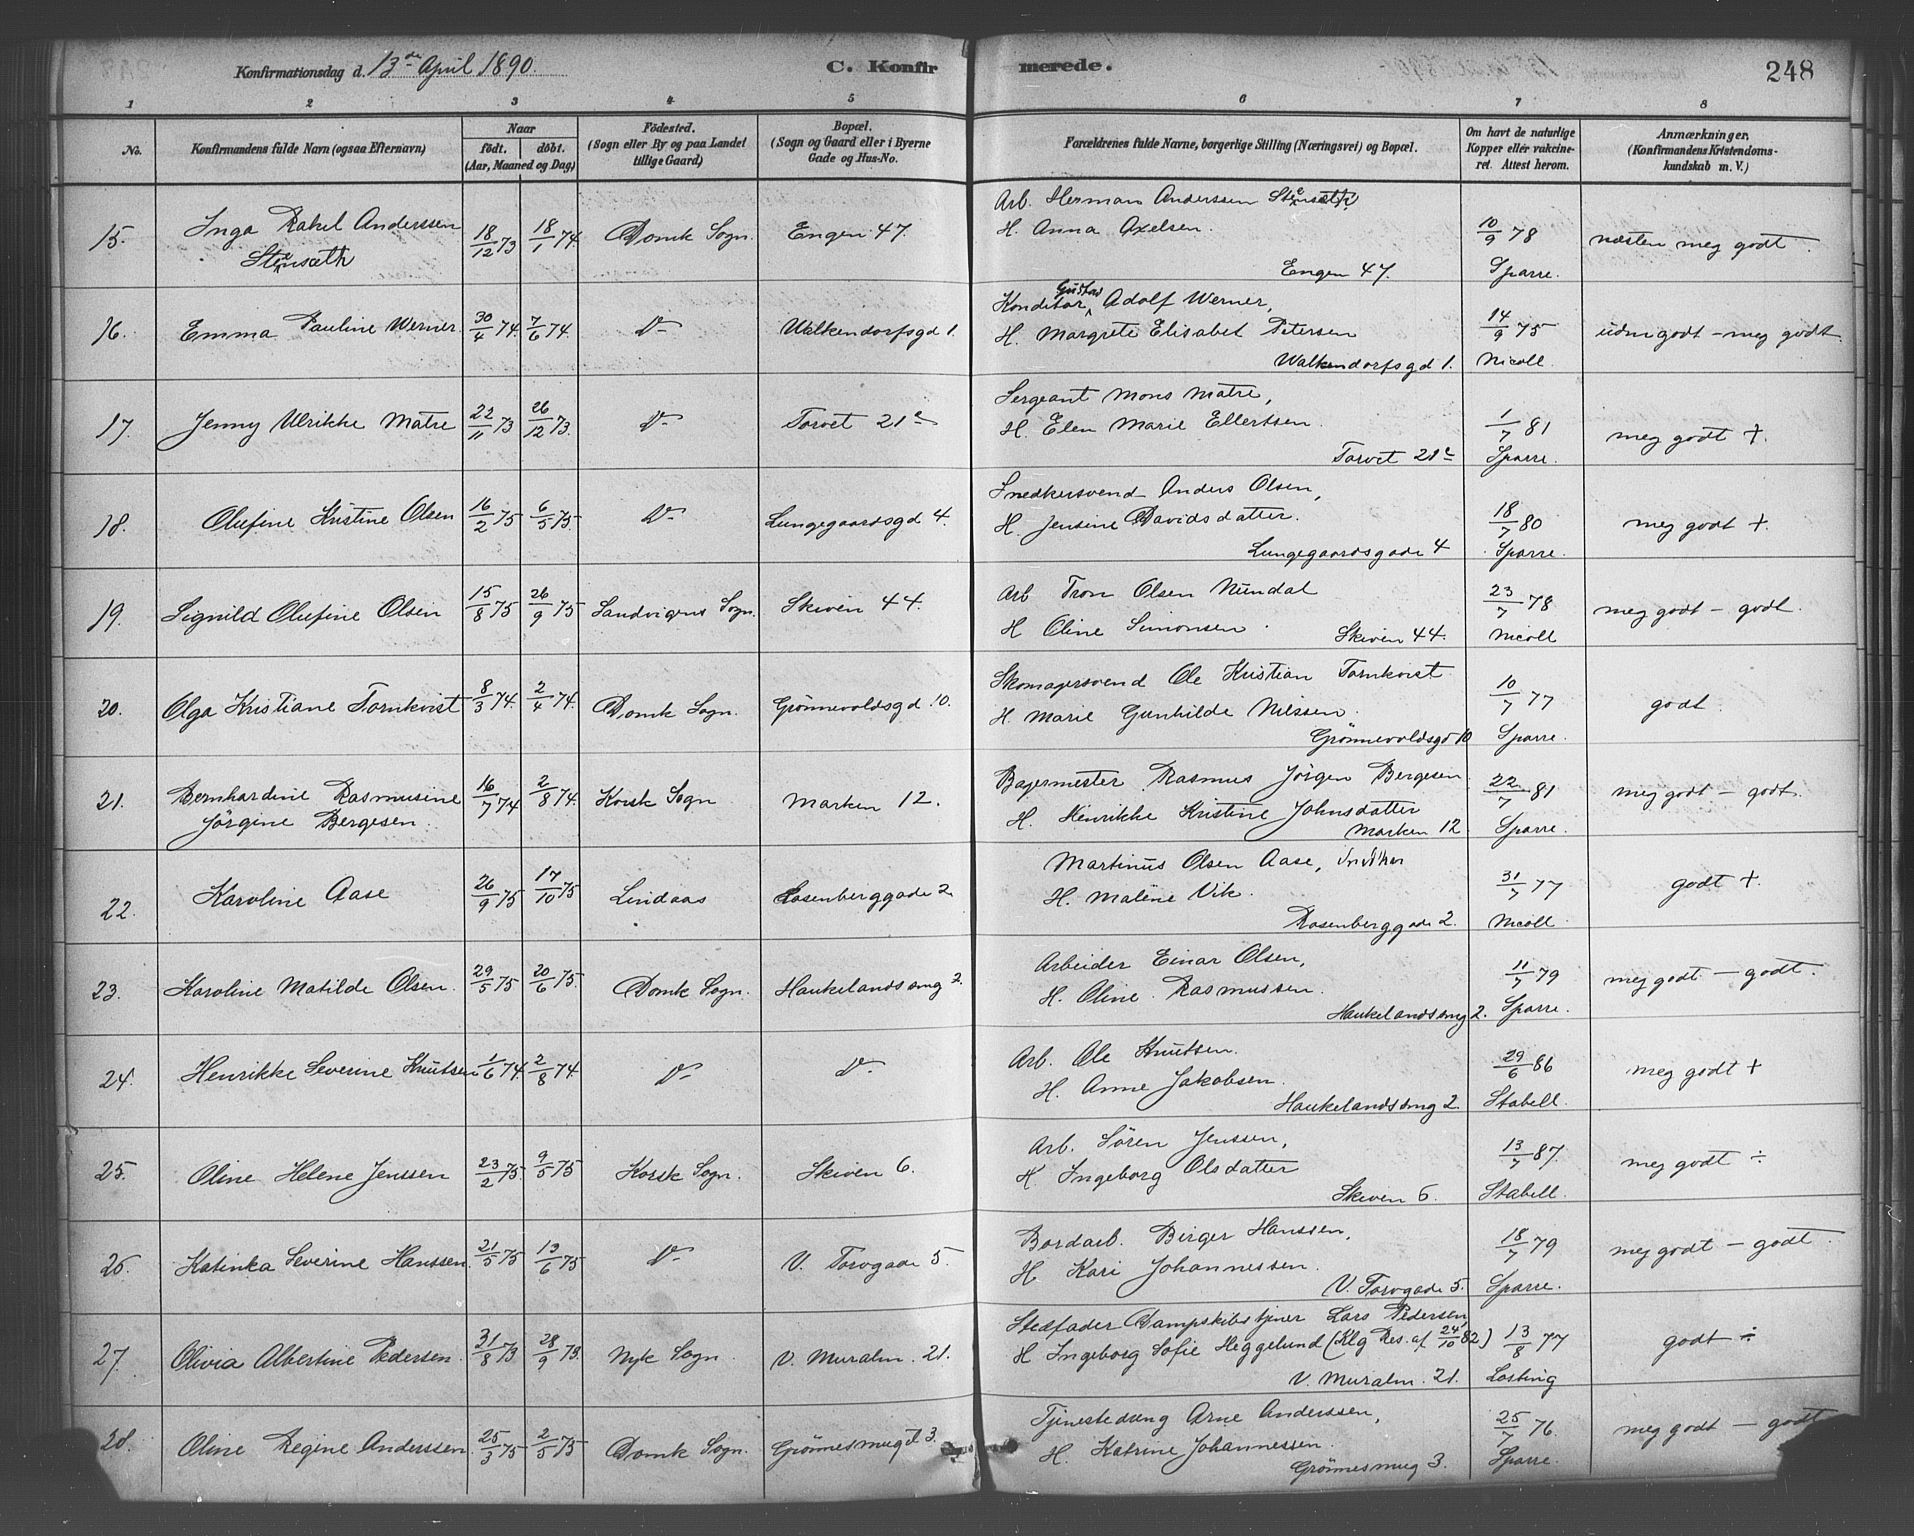 Konfirmationsdag d. 13de April 1890.
C. Konfirmerede.
248
1 2 3 4 5 6 7 8
No.
Konfirmandens fulde Navn (ogsaa Efternavn)
Naar
født. døbt.
(Aar, Maaned og Dag)
Födested.
(Sogn eller By og paa Landet
tillige Gaard)
Bopæl.
(Sogn og Gaard eller i Byerne
Gade og Hus-No.
Forældrenes fulde Navne, borgerlige Stilling (Næringsvei) og Bopæl.
Om havt de naturlige
Kopper eller vakcine-
ret. Attest herom.
Anmærkninger,
(Konfirmandens Kristendoms-
kundskab m. V.)
15. Inga Rakel Anderssen
Stensæth
18/12 73 18/1 74 Domk Sogn. Engen 47.
Arb. Herman Anderssen Stensæth
H. Anna Axelsen.
Engen 47.
10/9 78
Sparre.
næsten meg godt
16. Emma Pauline Werner
30/4 74 7/6 74. Do Walkendorfsgd 1.
Konditor Gustav Adolf Werner,
H. Margrete Elisabet Petersen
Walkendorfsgd 1.
14/9 75
Nicoll
udm godt - meg godt.
17. Jenny Ulrikke Matre
22/11 73 26/12 73. Do Torvet 21c
Sergeant Mons Matre,
H. Elen Marie Ellertsen.
Torvet 21c
1/7 81
Sparre.
meg godt +.
18. Olufine Kristine Olsen
16/2 75 6/5 75. Do Lungegaardsgd 4.
Snedkersvend Anders Olsen,
H. Jensine Davidsdatter.
Lungegaardsgade 4
18/7 80
Sparre.
meg godt +.
19. Signild Olufine Olsen
15/8 75 26/9 75 Sandvigens Sogn. Skiven 44.
Arb Tron Olsen Nundal
H Oline Simonsen.
Skiven 44.
23/7 78
Nicoll
meg godt - godt.
20. Olga Kristiane Tornkvist
8/3 74. 2/4 74. Domk Sogn. Grönnevoldsgd. 10.
Skomagersvend Ole Kristian Tornkvist
H. Marie Gunhilde Nilssen.
Grönnevoldsgd 10
10/7 77
Sparre.
godt.
21. Bernhardine Rasmusine
Jörgine Bergesen.
16/7 74 2/8 74. Korsk Sogn Marken 12.
Bagermester Rasmus Jörgen Bergesen.
H. Henrikke Kristine Johnsdatter
Marken 12
22/7 81
Sparre.
meg godt - godt.
22. Karoline Aase
26/9 75 17/10 75 Lindaas Rosenberggade 2.
Martinus Olsen Aase, Snedker
H. Maléne Vik.
Rosenberggade 2.
31/7 77
Nicoll
godt +.
23. Karoline Matilde Olsen.
29/5 75 20/6 75. Domk Sogn. Haukelandssmg 2.
Arbeider Einar Olsen,
H. Oline Rasmussen.
Haukelandssmg 2.
11/7 79
Sparre.
meg godt - godt.
24. Henrikke Severine Knutsen
1/6 74. 2/8 74. Do Do
Arb. Ole Knutsen.
H. Anne Jakobsen.
Haukelandssmg 2.
29/6 86
Stabell.
meg godt +
25. Oline Helene Jenssen
23/2 75. 9/5 75 Korsk Sogn. Skiven 6.
Arb. Sören Jenssen,
H Ingeborg Olsdatter
Skiven 6.
13/7 87
Stabell.
meg godt ÷
26. Katinka Severine Hanssen.
21/5 75 13/6 75 Do V. Torvgade 5.
Bordarb. Birger Hanssen,
H. Kari Johannessen.
V. Torvgade 5.
18/7 79
Sparre.
meg godt - godt.
27. Olivia Albertine Pedersen.
31/8 73 28/9 73. Nyk Sogn. V. Muralm. 21.
Stedfader Dampskibstjener Lars Pedersen,
H Ingeborg Sofie Heggelund (Klg Res. af 24/10 82)
V. Muralm. 21.
13/8 77
Losting
godt ÷
28. Oline Regine Anderssen.
25/3 75 2/5 75 Domk Sogn. Grönnesmuget 3.
Tjenestedreng Arne Anderssen,
H. Katrine Johannessen.
Grönnesmug 3.
25/7 76
Sparre.
meg godt - godt